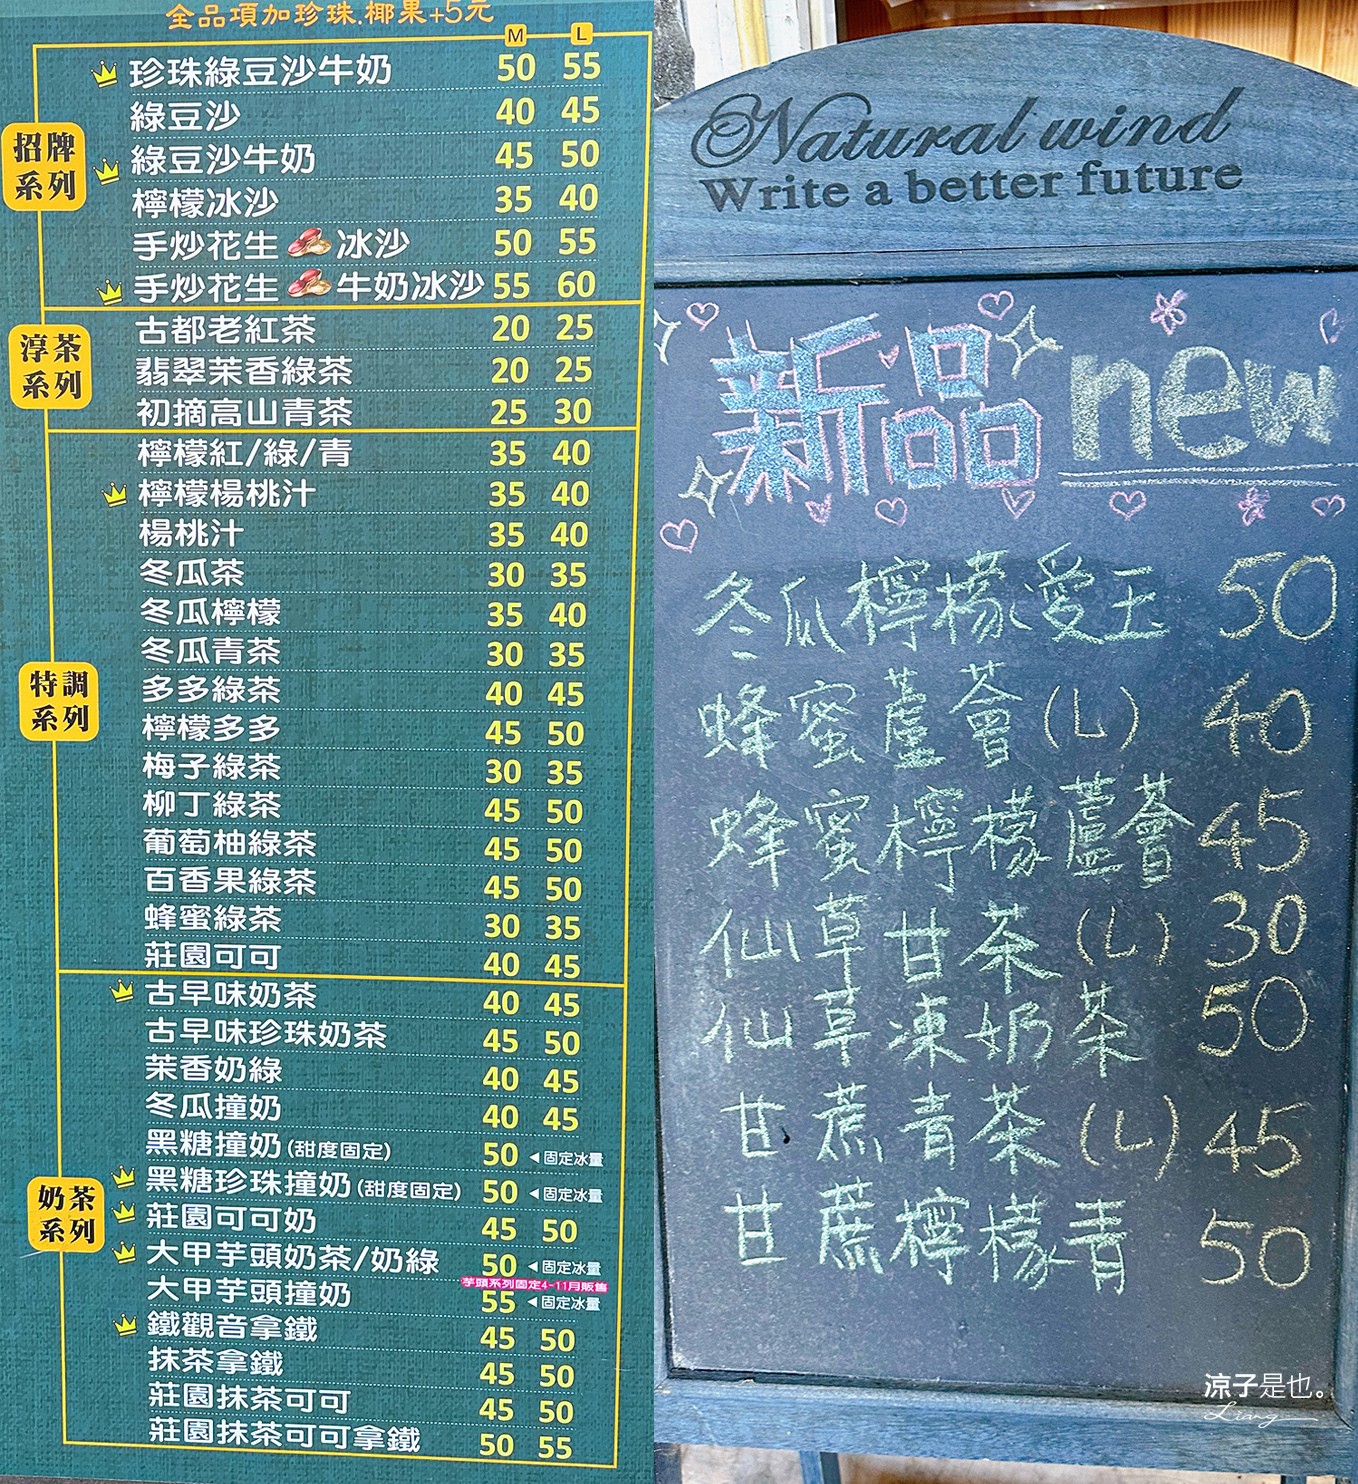 全品項加珍珠.椰果+5元
M L
招牌系列
珍珠綠豆沙牛奶 50 55
綠豆沙 40 45
綠豆沙牛奶 45 50
檸檬冰沙 35 40
手炒花生冰沙 50 55
手炒花生牛奶冰沙 55 60
淳茶系列
古都老紅茶 20 25
翡翠茉香綠茶 20 25
初摘高山青茶 25 30
特調系列
檸檬紅/綠/青 35 40
檸檬楊桃汁 35 40
楊桃汁 35 40
冬瓜茶 30 35
冬瓜檸檬 35 40
冬瓜青茶 30 35
多多綠茶 40 45
檸檬多多 45 50
梅子綠茶 30 35
柳丁綠茶 45 50
葡萄柚綠茶 45 50
百香果綠茶 45 50
蜂蜜綠茶 30 35
莊園可可 40 45
奶茶系列
古早味奶茶 40 45
古早味珍珠奶茶 45 50
茉香奶綠 40 45
冬瓜撞奶 40 45
黑糖撞奶(甜度固定) 50 ◄固定冰量
黑糖珍珠撞奶(甜度固定) 50 ◄固定冰量
莊園可可奶 45 50
大甲芋頭奶茶/奶綠 50 ◄固定冰量
芋頭系列固定4-11月販售
大甲芋頭撞奶 55 ◄固定冰量
鐵觀音拿鐵 45 50
抹茶拿鐵 45 50
莊園抹茶可可 45 50
莊園抹茶可可拿鐵 50 55
Natural wind
Write a better future
新品 new
冬瓜檸檬愛玉 50
蜂蜜蘆薈(L) 40
蜂蜜檸檬蘆薈 45
仙草甘茶(L) 30
仙草凍奶茶 50
甘蔗青茶(L) 45
甘蔗檸檬青 50
涼子是也。
Liang